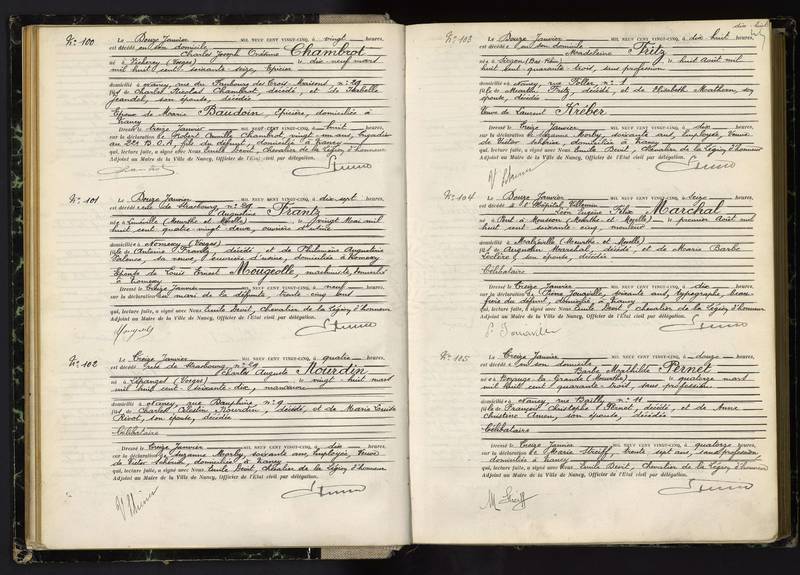 dix huit
N: 100
Le Douze Janvier MIL NEUF CENT VINGT-CINQ, à vingt heures,
est décédé en son domicile
Charles Joseph Onésime Chambrot
né à Vicherey (Vosges) le dix neuf mars
mil huit cent soixante seize, épicier
domicilié à Nancy, rue du Faubourg des Trois Maisons, n: 29
fils de Charles Nicolas Chambrot, décédé, et de Isabelle
Jeandel, son épouse, décédée
Epoux de Marie Baudoin, épicière, domiciliée à
Nancy
Dressé le Treize Janvier MIL NEUF CENT VINGT-CINQ, à huit heures,
sur la déclaration de Robert Camille Chambrot, vingt et un ans, brigadier
au fils du défunt, domicilié à Nancy
qui, lecture faite, a signé avec Nous Emile Devit, Chevalier de la Légion d'honneur
Adjoint au Maire de la Ville de Nancy, Officier de l'Etat civil par délégation.
N: 101
Le Douze Janvier MIL NEUF CENT VINGT-CINQ, à dix sept heures,
est décédée rue de Strasbourg
Augustine Frantz
née à Lunéville (Meurthe et Moselle) le vingt Mai mil
huit cent quatre vingt deux, ouvrière d'usine
domiciliée à Nomexy (Vosges)
fille de Antoine Frantz, décédé et de Philomène Augustine
sa veuve, ouvrière d'usine, domiciliée à Nomexy
Epouse de Louis Ernest Mougeolle, machiniste, domicilié
à Nomexy
Dressé le Treize Janvier MIL NEUF CENT VINGT-CINQ, à neuf heures,
sur la déclaration du mari de la défunte, trente cinq ans
qui, lecture faite, a signé avec Nous Emile Devit, Chevalier de la Légion d'honneur
Adjoint au Maire de la Ville de Nancy, Officier de l'Etat civil par délégation.
N: 102
Le Treize Janvier MIL NEUF CENT VINGT-CINQ, à quatre heures,
est décédé rue de Strasbourg
Charles Auguste Mourdin
né à Lépanges (Vosges) le vingt huit mars
mil huit cent soixante dix, manœuvre
domicilié à Nancy, rue Dauphine, n: 9
fils de Charles Célestin Mourdin, décédé, et de Marie Louise
Rivot, son épouse, décédée
Célibataire
Dressé le Treize Janvier MIL NEUF CENT VINGT-CINQ, à dix heures,
sur la déclaration de Suzanne Morby, soixante ans, employée, Veuve
de Victor domiciliée à Nancy
qui, lecture faite, a signé avec Nous Emile Devit, Chevalier de la Légion d'honneur
Adjoint au Maire de la Ville de Nancy, Officier de l'Etat civil par délégation.
N: 103
Le Douze Janvier MIL NEUF CENT VINGT-CINQ, à dix huit heures,
est décédée en son domicile
Madeleine Fritz
née à (Bas Rhin) le huit Août mil
huit cent quarante trois, sans profession
domiciliée à Nancy, rue n: 1
fille de Martin Fritz, décédé, et de Elisabeth son
épouse, décédée
Veuve de Laurent Kréber
Dressé le Treize Janvier MIL NEUF CENT VINGT-CINQ, à dix heures,
sur la déclaration de Suzanne Morby, soixante ans, employée, Veuve
de Victor domiciliée à Nancy
qui, lecture faite, a signé avec Nous Emile Devit, Chevalier de la Légion d'honneur
Adjoint au Maire de la Ville de Nancy, Officier de l'Etat civil par délégation.
N: 104
Le Douze Janvier MIL NEUF CENT VINGT-CINQ, à seize heures,
est décédé à l'Hôpital Villemin
Léon Eugène Félix Marchal
né à Pont à Mousson (Meurthe et Moselle) le premier Août mil
huit cent soixante cinq, mouleur
domicilié à Malzéville (Meurthe et Moselle)
fils de Augustin Marchal, décédé, et de Marie Barbe
Leclerc, son épouse, décédée
Célibataire
Dressé le Treize Janvier MIL NEUF CENT VINGT-CINQ, à dix heures,
sur la déclaration de Pierre soixante ans, typographe, beau
frère du défunt, domicilié à Nancy
qui, lecture faite, a signé avec Nous Emile Devit, Chevalier de la Légion d'honneur
Adjoint au Maire de la Ville de Nancy, Officier de l'Etat civil par délégation.
N: 105
Le Treize Janvier MIL NEUF CENT VINGT-CINQ, à douze heures,
est décédée en son domicile
Barbe Mathilde Pernet
née à la Grande (Meurthe) le quatorze mars
mil huit cent quarante trois, sans profession
domiciliée à Nancy, rue Bailly, n: 11
fille de François Christophe Pernet, décédé, et de Anne
Christine son épouse, décédée
Célibataire
Dressé le Treize Janvier MIL NEUF CENT VINGT-CINQ, à quatorze heures,
sur la déclaration de Marie Streiff, trente sept ans, sans profession,
domiciliée à Nancy
qui, lecture faite, a signé avec Nous Emile Devit, Chevalier de la Légion d'honneur
Adjoint au Maire de la Ville de Nancy, Officier de l'Etat civil par délégation.